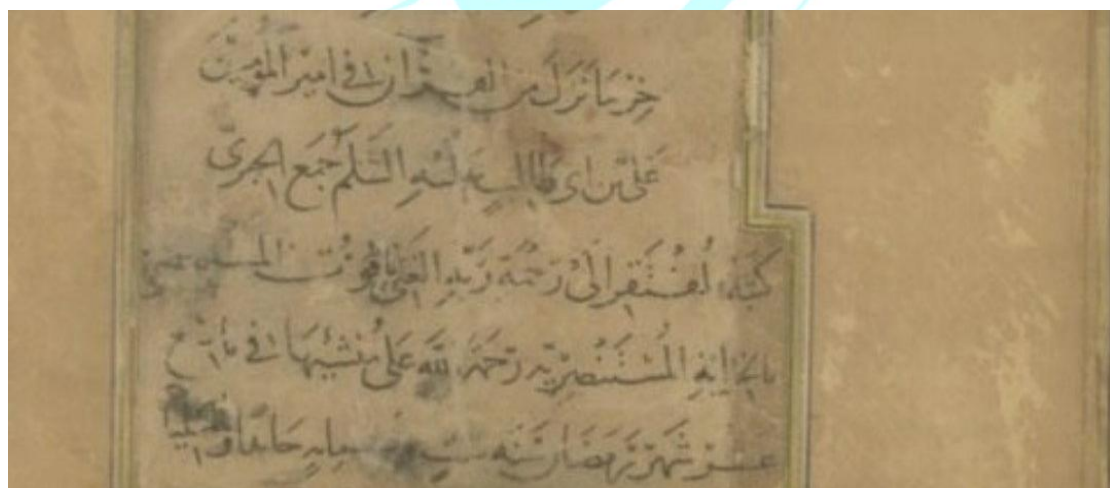 خبر ما نزل من القرآن في امير المؤمنين
علي بن ابى طالب عليه السلم جمع الجرى
كتبه المفتقر الى رحمة ربه الغنى ياقوت المستعصمى
بالخزانة المستنصرية رحمة الله على منشيها فى تاسع
عشر شهر رمضان سنه ست مايه حامدا